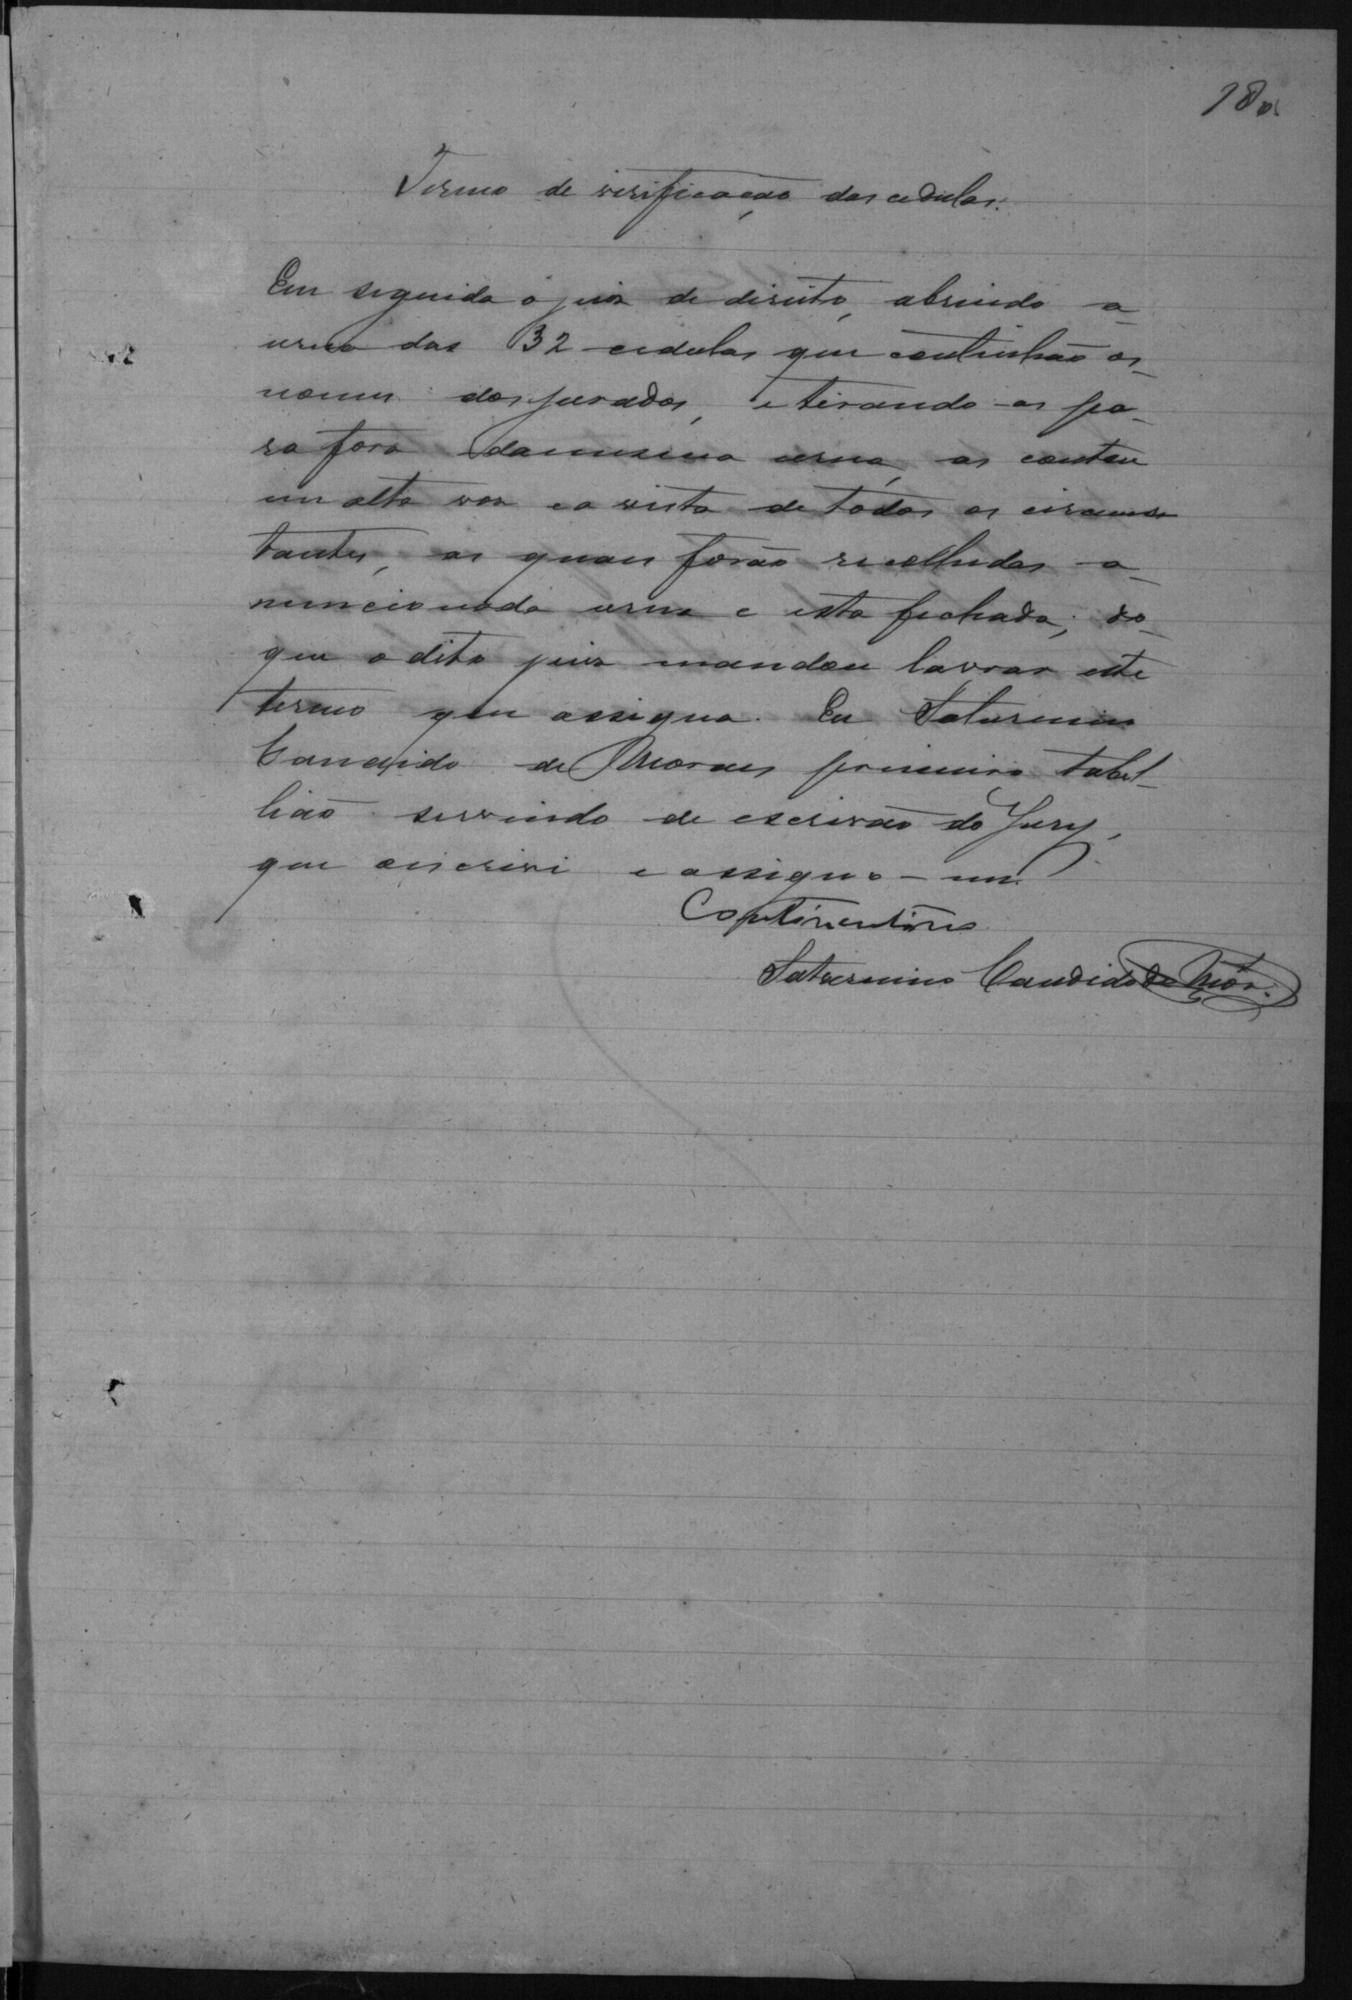 180
Termo de verificação das cedulas.
Em seguida o juiz de direito, abrindo a
urna das 32 cedulas que continhão os
nomes dos jurados, e tirando-as pa-
ra fora da mesma urna, as contou
em alta voz e a vista de todos os circums
tantes, as quaes forão recolhidas a
mencionada urna e esta fechada; do
que o dito juiz mandou lavrar este
termo que assigna. Eu Saturnino
Candido de Moraes primeiro tabel-
lião servindo de escrivão do Jury,
que escrevi e assigno-me.
Saturnino Candido de Mor.